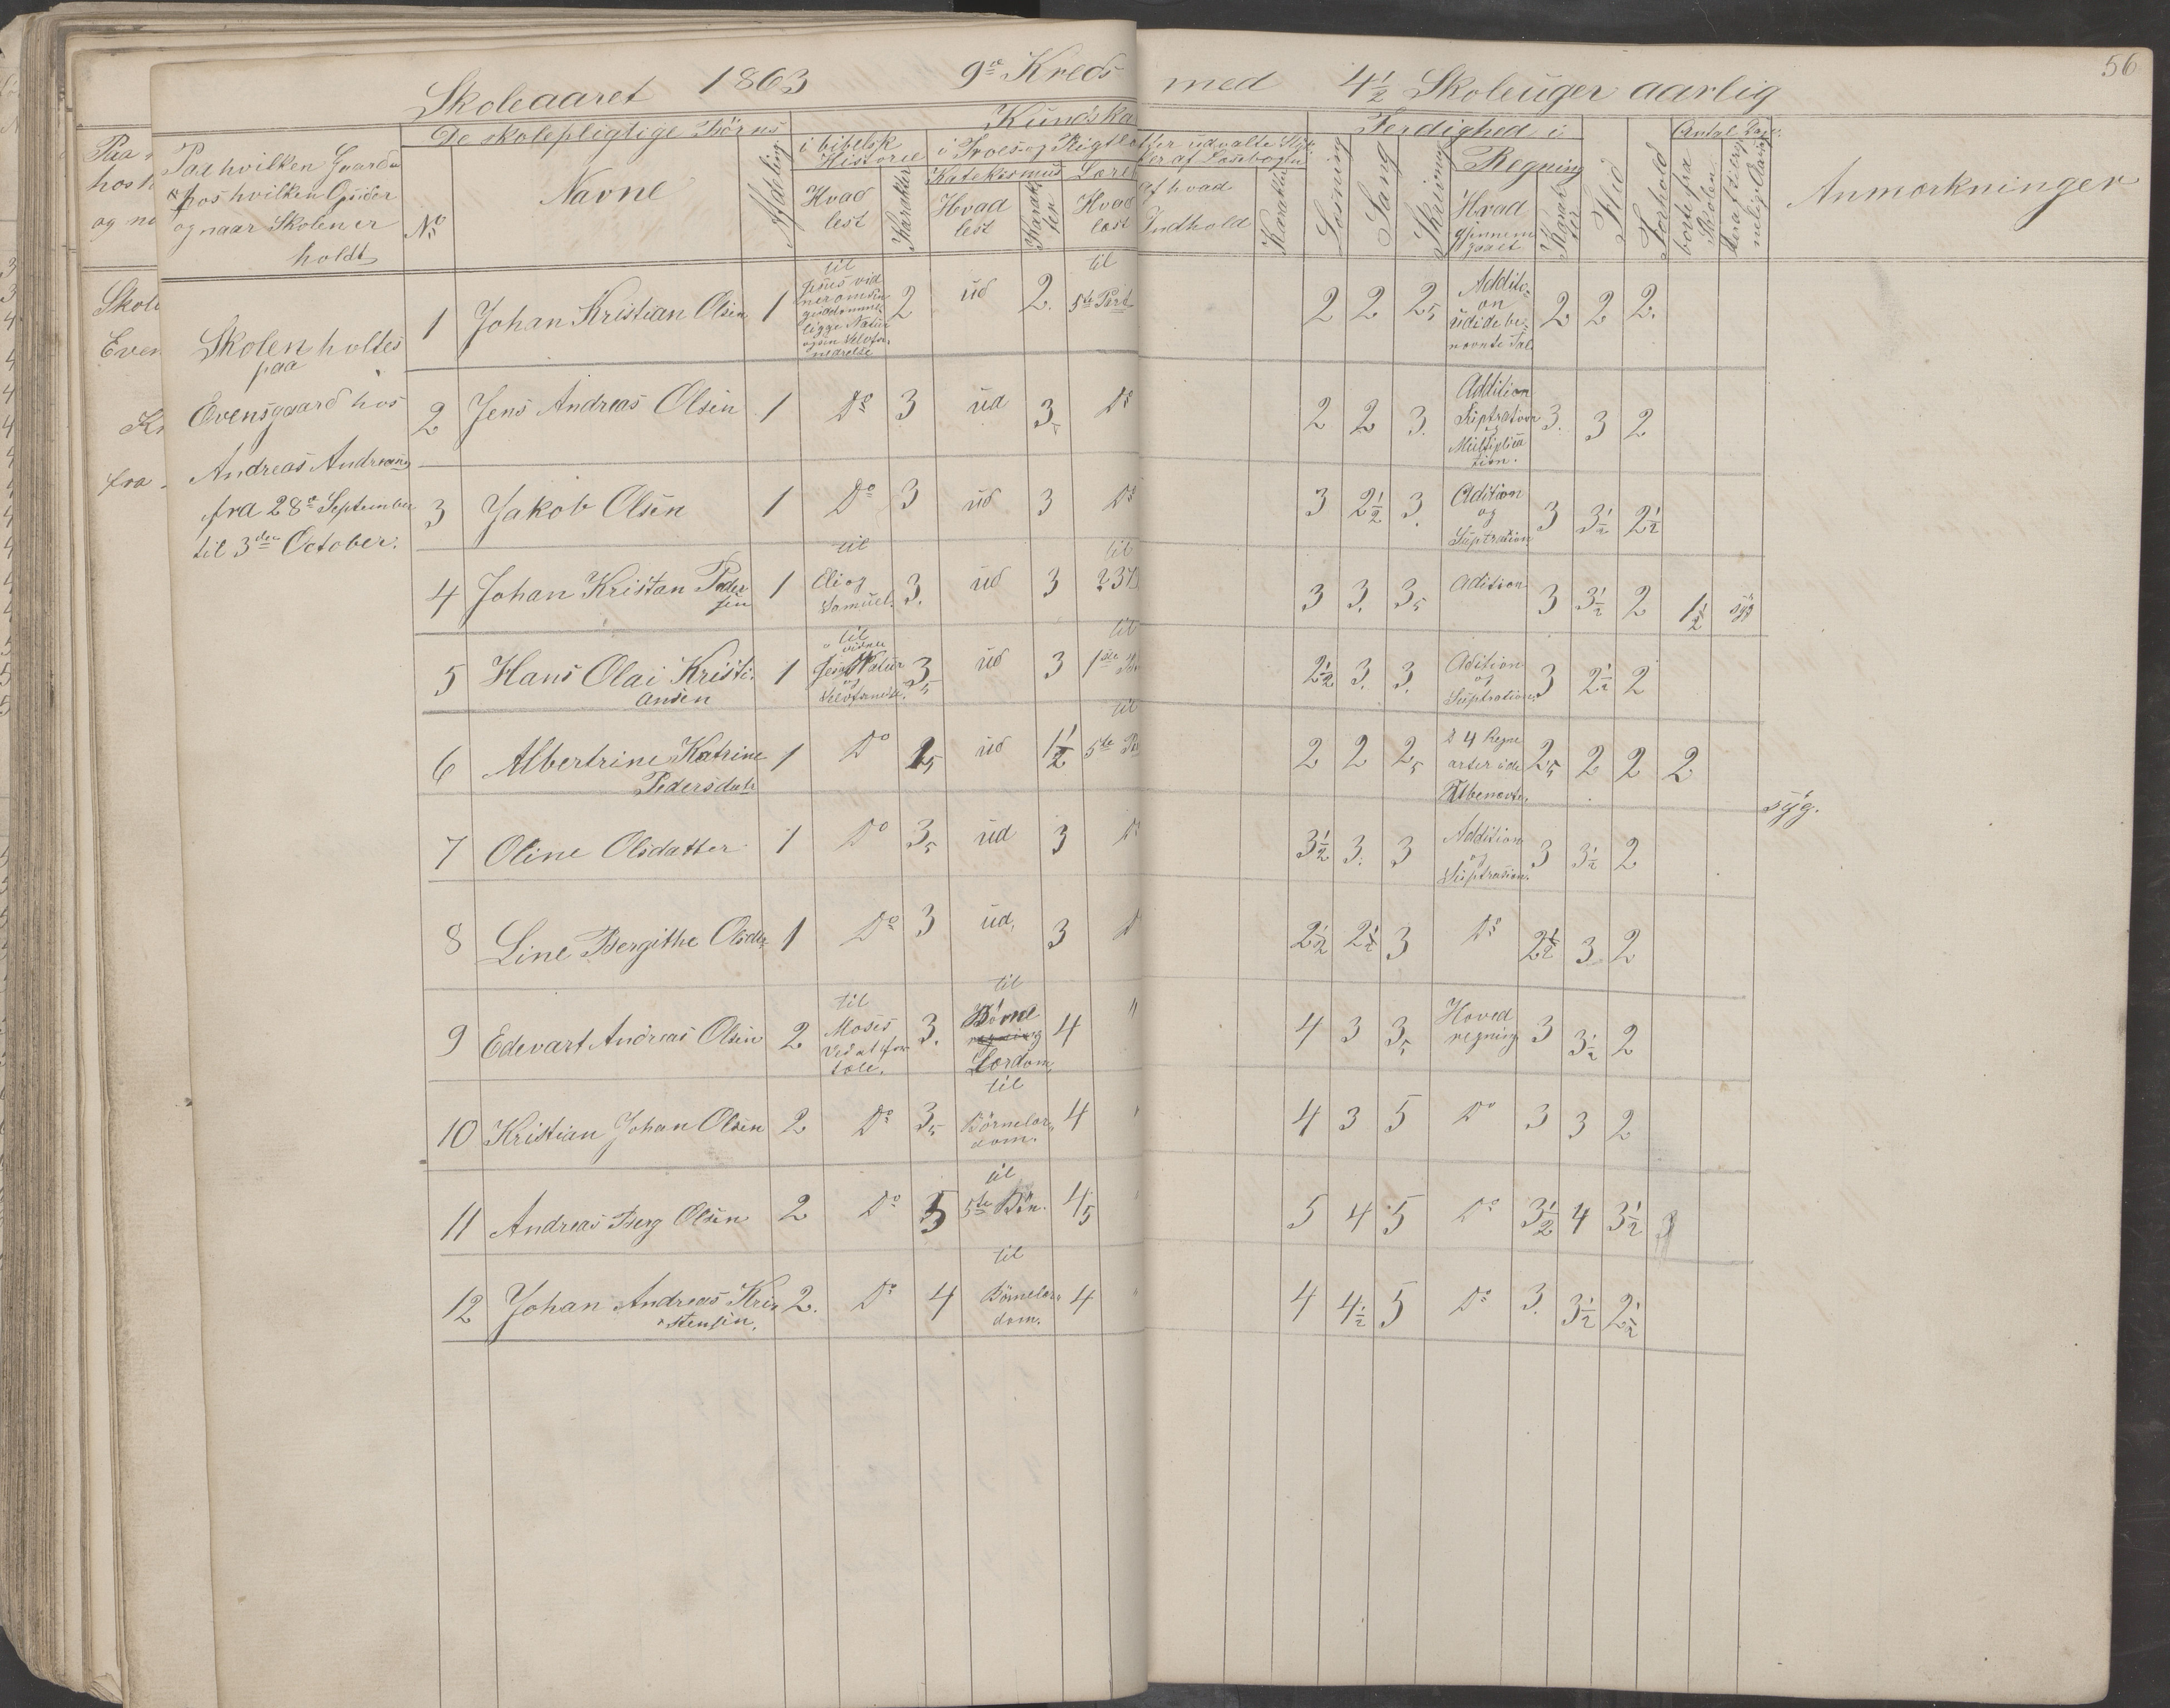 56
Skoleaaret 1863 9de Kreds med 4 1/2 Skoleuger aarlig
Paa hvilken Gaard
hos hvilken Opsider
og naar Skolen er
holdt
De skolepligtige Börns
No
Navne
Afdeling
Kundska
i bibelsk
Historie
Hvad
lest
Karakter
i Troes og Pligtlæ
Katekismus
Hvad
lest
Karakter
Hvad
læst
udvalte Styk
ker af Læsebogen
af hvad
Indhold
Karakter
Ferdighed i
Læsning
Sang
Skrivning
Regning
Hvad
gjennem
gaaet
Karakter
Flid
Forhold
Antal Dage
borte fra
Skolen
Anmærkninger
Skolen holtes
paa
Evensgaard hos
Andreas
fra 28de September
til 3den October.
1 Johan Kristian Olsen 1 til Jesus 2 ud 2. til 5te Part 2 2 2,5 Additi-
on udi de be-
nævnte Tal 2 2 2.
2 Jens Andreas Olsen 1 Do 3 ud 3 Do 2 2 3. Addition
Suptration
Multiplica
tion. 3. 3 2
3 Jakob Olsen 1 Do 3 ud 3 Do 3 2 1/2 3. Adition
og
Suptration 3 3 1/2 2 1/2
4 Johan Kristan Peder
sen 1 til
Eli og
Samuel. 3. ud 3 til 237 3 3. 3,5 Adition 3 3 1/2 2 1 1/2 syg
5 Hans Olai Kristi.
ansen 1 til
Natur
og 3,5 ud 3 til 1ste 2 1/2 3. 3. Adition
og
Suptration. 3 2 1/2 2
6 Albertrine Katrine
Pedersdatr 1 Do 1,5 ud 1 1/2 til 5te 2 2 2,5 4 Regne
arter i de
Ubenævte 2,5 2 2 2
syg.
7 Oline Olsdatter 1 Do 3,5 ud 3 3 1/2 3. 3 Addition
og
Suptrasion. 3 3 1/2 2
8 Line Bergithe Olsdr 1 Do 3 ud, 3 2 1/2 2 1/2 3 Do 2 1/2 3 2
9 Edevart Andreas Olsen 2 til
Moses
Ved at for
tole. 3. til
Börne
Lærdom 4 " 4 3 3,5 Hoved
regning 3 3 1/2 2
10 Kristian Johan Olsen 2 Do 3,5 til
Börnelær
dom. 4 " 4 3 5 Do 3 3 2
11 Andreas Berg Olsen 2 Do 5 til
5te Bön. 4,5 " 5 4 5 Do 3 1/2 4 3 1/2
12 Johan Andreas Kris
stensen. 2. Do 4 til
Börnelær
dom. 4 " 4 4 1/2 5 Do 3. 3 1/2 2 1/2